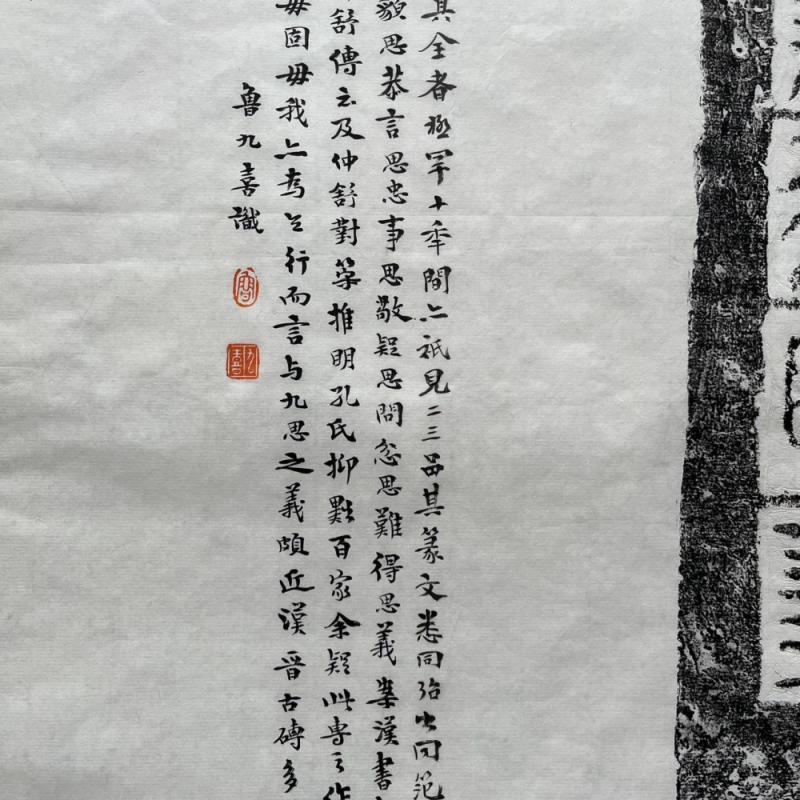 其全者極罕十年間亦祇見二三品其篆文悉同殆出同范
貌思恭言思忠事思敬疑思問忿思難得思義案漢書
舒傳云及仲舒對策推明孔氏抑黜百家余疑此專之作
毋固毋我亦為行而言与九思之義頗近漢晉古磚多
魯九喜識
九喜